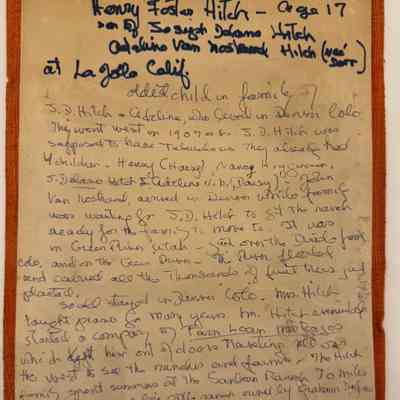 Henry Foster Hitch - age 17
son of Joseph Delano Hitch
Adeline Van Nostrand Hitch (née
DORR)
at La Jolla Calif.
oldest child in family of
J.D. Hitch & Adeline, who lived in Denver Colo.
They went west in 1907 as J.D. Hitch was
supposed to have Tuberculosis They already had
4 children - Henry (Harry) Nancy
J. Delano Hitch & Adeline N.D. (Daisy) John
Van Nostrand, arrived in Denver while family
was waiting for J.D. Hitch to get the ranch
ready for the family to move to. It was
in Green River Utah - just over the from
Colo. and on the Green River - The River flooded
and carried all the thousands of fruit trees just
planted.
So all stayed in Denver Colo. Mrs. Hitch
taught piano for many years Mr. Hitch eventually
started a company of Farm Loan Mortgages
which kept him out of doors traveling all over
the west to see the ranches and farms - The Hitch
family spent summers at the Ranch 70 miles
owned by